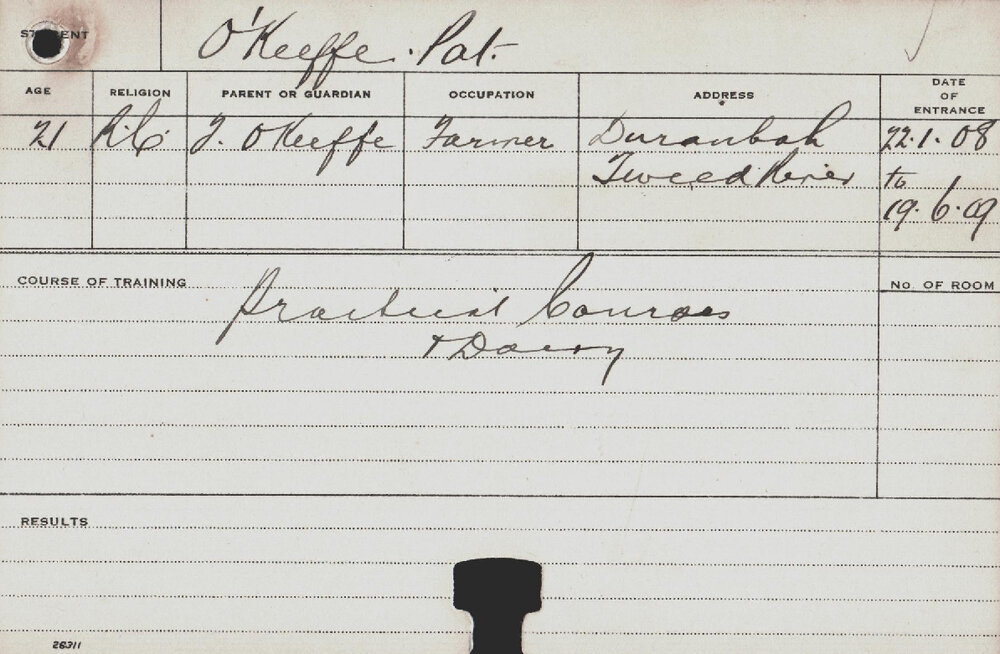 STUDENT O'Keeffe. Pat.
AGE RELIGION PARENT OR GUARDIAN OCCUPATION ADDRESS DATE OF ENTRANCE
21 R.C. J. O'Keeffe Farmer Duranbah 22.1.08
Tweed River to
19.6.09
COURSE OF TRAINING Practical Courses No. OF ROOM
+ Dairy
RESULTS
26311